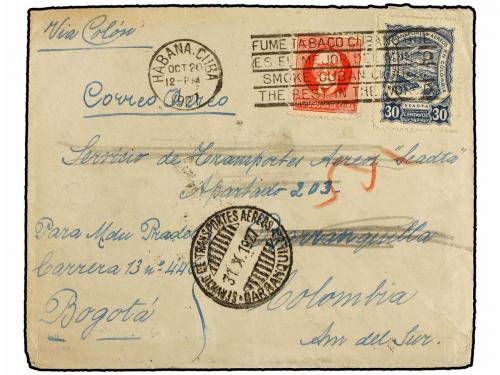 Via Colón
HABANA, CUBA
OCT 20
12-PM
1927
FUME TABACO CUBANO
ES EN MEJOR DEL
SMOKE CUBAN CIGARS
THE BEST IN THE
SCADTA
30 CENTAVOS 30
Correo Aereo
Servicio de Transportes Aereos "Scadta"
Apartado 203
Barranquilla
Para Mdu Prade
Carrera 13 nº 44
Bogotá
Colombia
Am del Sur.
SERVICIO DE TRANSPORTES AEREOS
31 X 1927
BARRANQUILLA